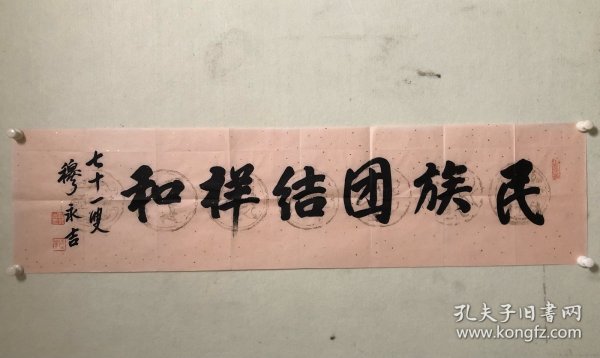 民族团结祥和
七十一叟
穆永吉
孔夫子旧书网
www.kongfz.com